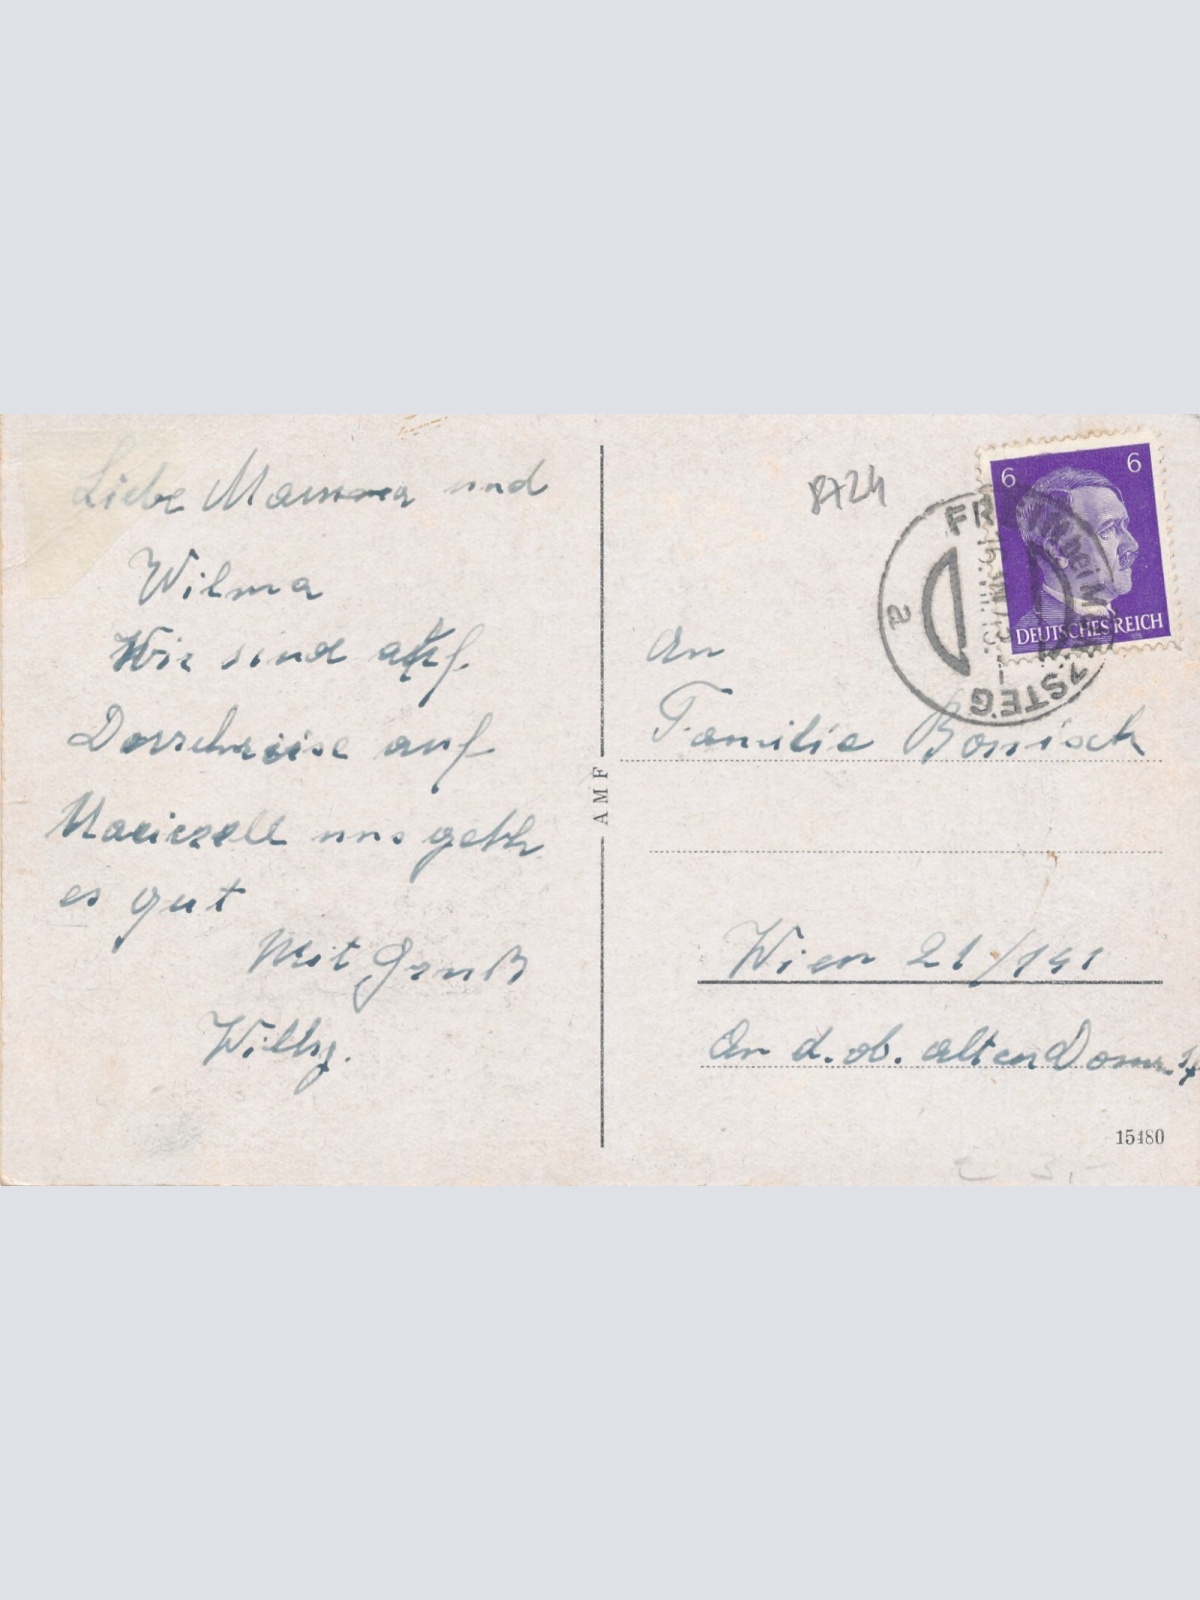 Liebe Mamma und
Wilma
Wir sind auf
Durchreise auf
Mariezell uns geth
es gut
Mit Gruß
Willy.
AMF
8724
6 6
DEUTSCHES REICH
FREIN bei MÜRZSTEG
a
An
Familie Bonisch
Wien 21/141
An d. ob. alten Donau
15480
3,-